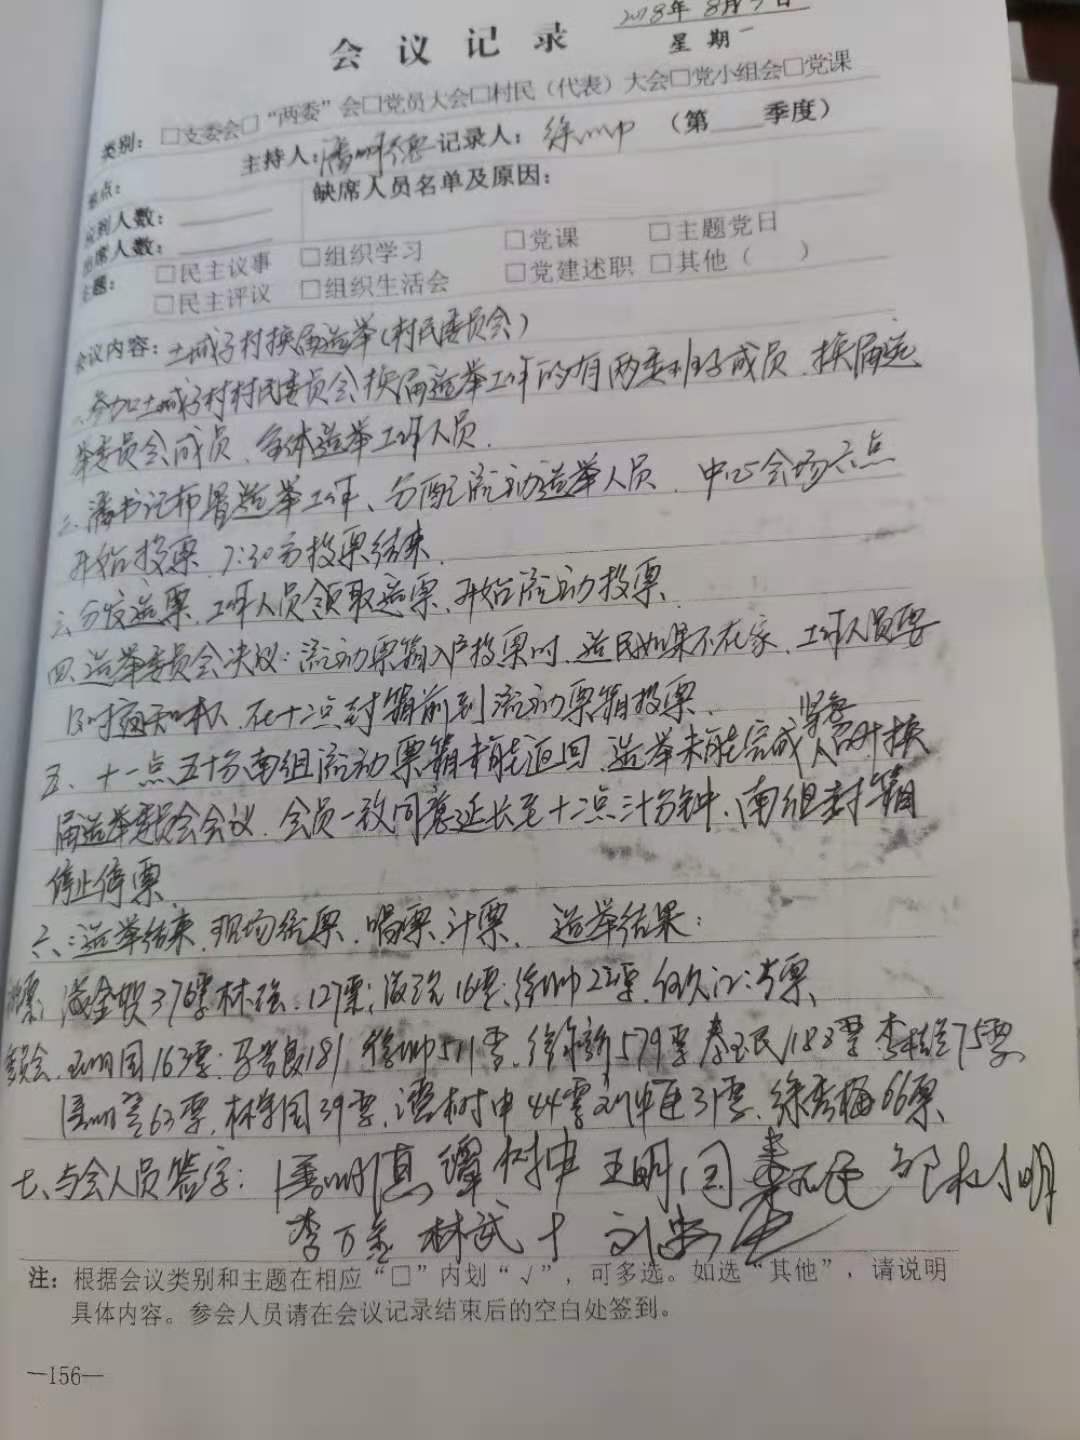 2018年8月 日
会议记录
星期一
类别：□支委会□“两委”会□党员大会□村民（代表）大会□党小组会□党课
主持人：潘明德 记录人：徐帅 （第 季度）
地点：
缺席人员名单及原因：
应到人数：
出席人数：
主题：
□民主议事 □组织学习 □党课 □主题党日
□民主评议 □组织生活会 □党建述职 □其他（ ）
会议内容：土城子村换届选举(村民委员会)
一、参加土城子村村民委员会换届选举工作的有两委班子成员、换届选
举委员会成员、全体选举工作人员.
二、潘书记布署选举工作、分配流动选举人员、中心会场六点
开始投票、7:30分投票结束.
三、分发选票、工作人员领取选票、开始流动投票、
四、选举委员会决议:流动票箱入户投票时、选民如果不在家、工作人员要
及时通知本人、在十二点封箱前到流动票箱投票.
紧急
五、十一点五十分南组流动票箱未能返回、选举未能完成、召开换
届选举委员会会议、会员一致同意延长至十二点三十分钟、南组封箱
停止停票、
六、:选举结束、现场统票、唱票、计票、选举结果:
376票 林强、127票; 16票;徐帅22票、
委员会、王明国163票; 181 徐帅511票、徐 579票 秦玉民188票 李 75票
63票、林 国39票、谭树申44票 31票、徐秀梅66票、
七、与会人员签字: 谭树申 王明国 秦玉民 邹树明
李万金 林武 刘
注：根据会议类别和主题在相应“□”内划“√”，可多选。如选“其他”，请说明
具体内容。参会人员请在会议记录结束后的空白处签到。
—156—